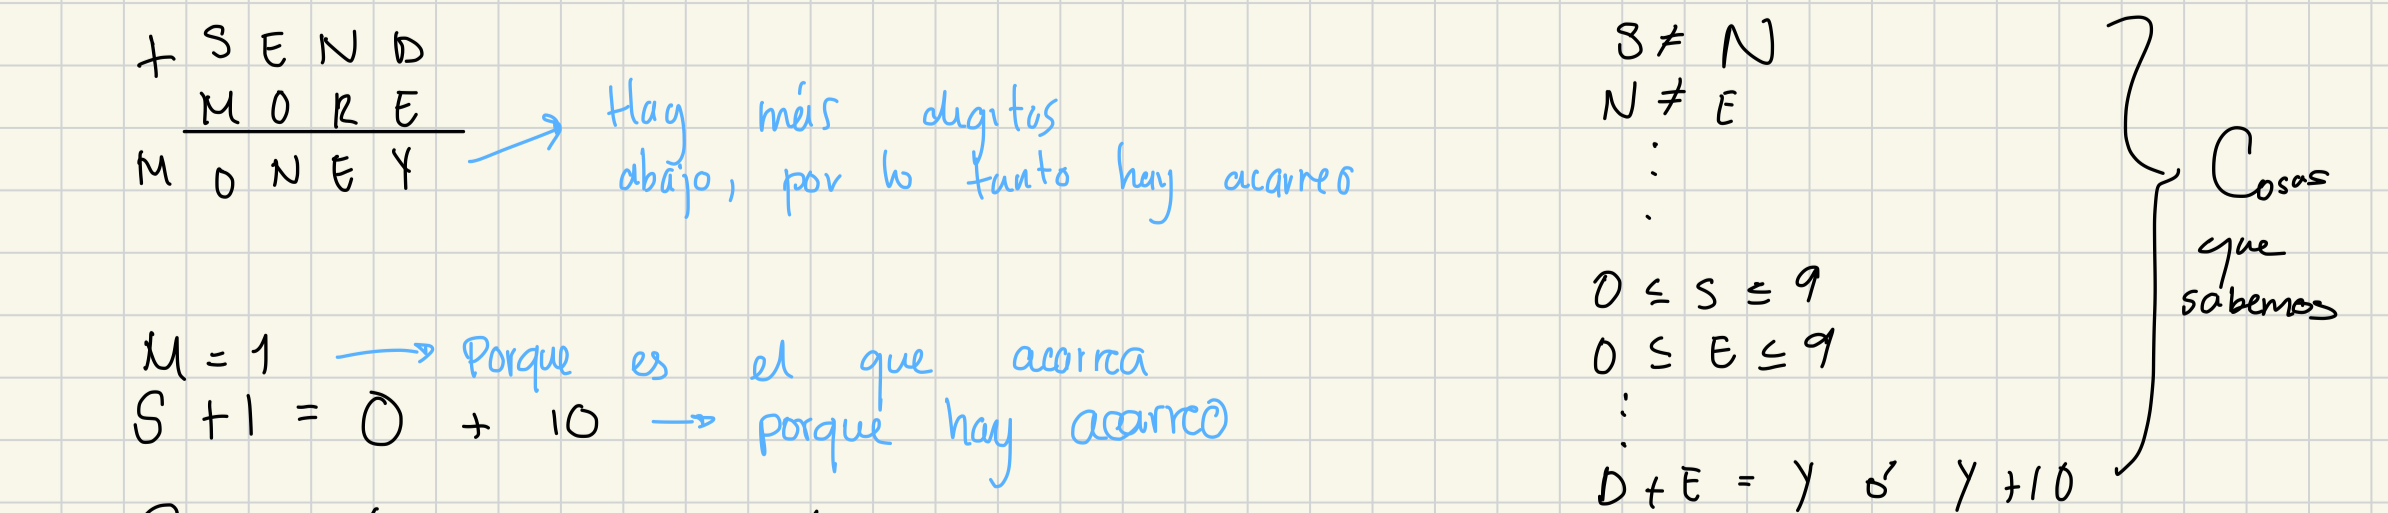 + S E N D
M O R E
M O N E Y
Hay más digitos
abajo, por lo tanto hay acarreo
M = 1 → Porque es el que acarrea
S + 1 = O + 10 → porque hay acarreo
S ≠ N
N ≠ E
⋮
0 ≤ S ≤ 9
0 ≤ E ≤ 9
⋮
D + E = Y ó Y + 10
Cosas
que
sabemos